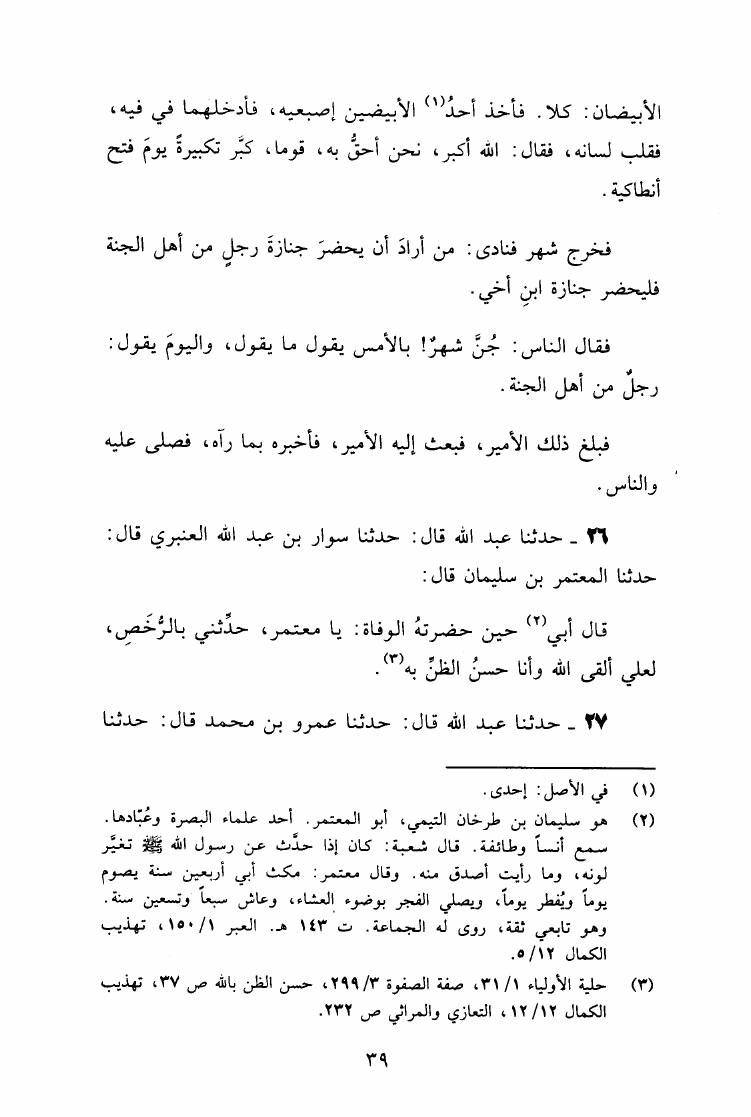 الأبيضان: كلا. فأخذ أحدُ(١) الأبيضين إصبعيه، فأدخلهما في فيه،
فقلب لسانه، فقال: الله أكبر، نحن أحقُّ به، قوما، كبَّر تكبيرةً يومَ فتح
أنطاكية.
فخرج شهر فنادى: من أرادَ أن يحضرَ جنازةَ رجلٍ من أهل الجنة
فليحضر جنازة ابنِ أخي.
فقال الناس: جُنَّ شهرٌ! بالأمس يقول ما يقول، واليومَ يقول:
رجلٌ من أهل الجنة.
فبلغ ذلك الأمير، فبعث إليه الأمير، فأخبره بما رآه، فصلى عليه
والناس.
٢٦ ـ حدثنا عبد الله قال: حدثنا سوار بن عبد الله العنبري قال:
حدثنا المعتمر بن سليمان قال:
قال أبي(٢) حين حضرتهُ الوفاة: يا معتمر، حدِّثني بالرُّخَصِ،
لعلي ألقى الله وأنا حسنُ الظنِّ به(٣).
٢٧ ـ حدثنا عبد الله قال: حدثنا عمرو بن محمد قال: حدثنا
(١) في الأصل: إحدى.
(٢) هو سليمان بن طرخان التيمي، أبو المعتمر. أحد علماء البصرة وعُبّادها.
سمع أنساً وطائفة. قال شعبة: كان إذا حدَّث عن رسول الله ﷺ تغيَّر
لونه، وما رأيت أصدق منه. وقال معتمر: مكث أبي أربعين سنة يصوم
يوماً ويُفطر يوماً، ويصلي الفجر بوضوء العشاء، وعاش سبعاً وتسعين سنة.
وهو تابعي ثقة، روى له الجماعة. ت ١٤٣ هـ. العبر ١/ ١٥٠، تهذيب
الكمال ١٢/ ٥.
(٣) حلية الأولياء ١/ ٣١، صفة الصفوة ٣/ ٢٩٩، حسن الظن بالله ص ٣٧، تهذيب
الكمال ١٢/ ١٢، التعازي والمراثي ص ٢٣٢.
٣٩